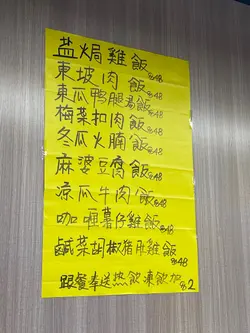 盐焗雞飯 $48
東坡肉飯 $48
東瓜鸭腿湯飯 $48
梅菜扣肉飯 $48
冬瓜火腩飯 $48
麻婆豆腐飯 $48
凉瓜牛肉飯 $48
咖喱薯仔雞飯 $48
鹹菜胡椒猪肚雞飯 $48
跟餐奉送热飲凍飲加 $2